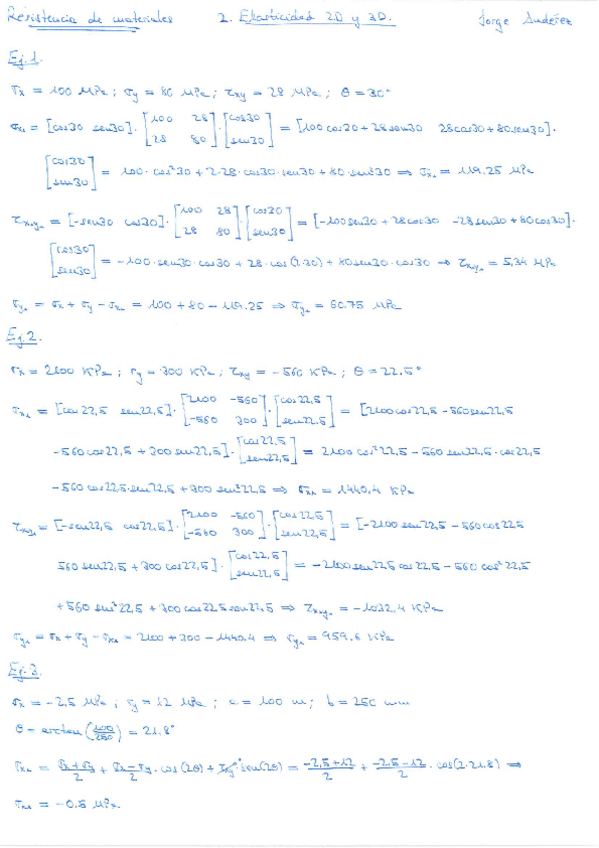 Resistencia de materiales 2. Elasticidad 2D y 3D. Jorge Andérez
Ej.1.
σx = 100 MPa ; σy = 80 MPa ; τxy = 28 MPa ; θ = 30°
σx₁ = [cos30 sen30] · [100 28; 28 80] · [cos30; sen30] = [100cos30+28sen30 28cos30+80sen30] ·
[cos30; sen30] = 100·cos²30 + 2·28·cos30·sen30 + 80·sen²30 ⇒ σx₁ = 119.25 MPa
τx₁y₁ = [-sen30 cos30] · [100 28; 28 80] [cos30; sen30] = [-100sen30+28cos30 -28sen30+80cos30] ·
[cos30; sen30] = -100·sen30·cos30 + 28·cos(2·30) + 80sen30·cos30 ⇒ τx₁y₁ = 5,34 MPa
σy₁ = σx + σy - σx₁ = 100 + 80 - 119.25 ⇒ σy₁ = 60.75 MPa
Ej.2.
σx = 2100 KPa ; σy = 300 KPa ; τxy = -560 KPa ; θ = 22.5°
σx₁ = [cos22,5 sen22,5] · [2100 -560; -560 300] · [cos22,5; sen22,5] = [2100cos22,5-560sen22,5
-560cos22,5 + 300sen22,5] · [cos22,5; sen22,5] = 2100cos²22,5 - 560sen22,5·cos22,5
-560cos22,5·sen22,5 + 300sen²22,5 ⇒ σx₁ = 1440,4 KPa
τx₁y₁ = [-sen22,5 cos22,5] · [2100 -560; -560 300] · [cos22,5; sen22,5] = [-2100sen22,5 - 560cos22,5
560sen22,5 + 300cos22,5] · [cos22,5; sen22,5] = -2100sen22,5cos22,5 - 560cos²22,5
+560sen²22,5 + 300cos22,5sen22,5 ⇒ τx₁y₁ = -1032,4 KPa
σy₁ = σx + σy - σx₁ = 2100 + 300 - 1440.4 ⇒ σy₁ = 959.6 KPa
Ej.3.
σx = -2,5 MPa ; σy = 12 MPa ; a = 100 m ; b = 250 mm
θ = arctan(100/250) = 21.8°
σx₁ = (σx+σy)/2 + (σx-σy)/2 · cos(2θ) + τxy·sen(2θ) = (-2,5+12)/2 + (-2,5-12)/2 · cos(2·21.8) ⇒
σx₁ = -0.5 MPa.